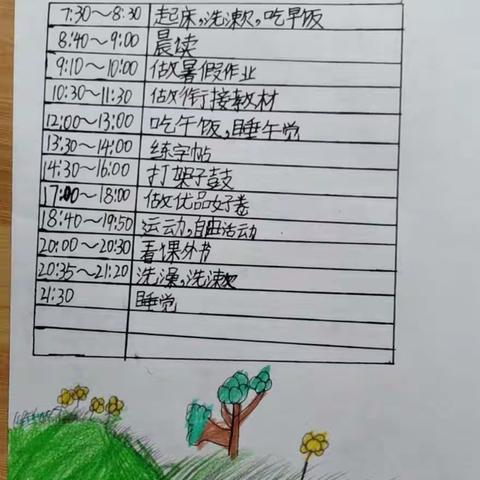 7:30～8:30 起床,洗漱,吃早饭
8:40～9:00 晨读
9:10～10:00 做暑假作业
10:30～11:30 做衔接教材
12:00～13:00 吃午饭,睡午觉
13:30～14:00 练字帖
14:30～16:00 打架子鼓
17:00～18:00 做优品好卷
18:40～19:50 运动,自由活动
20:00～20:30 看课外书
20:35～21:20 洗澡,洗漱
21:30 睡觉